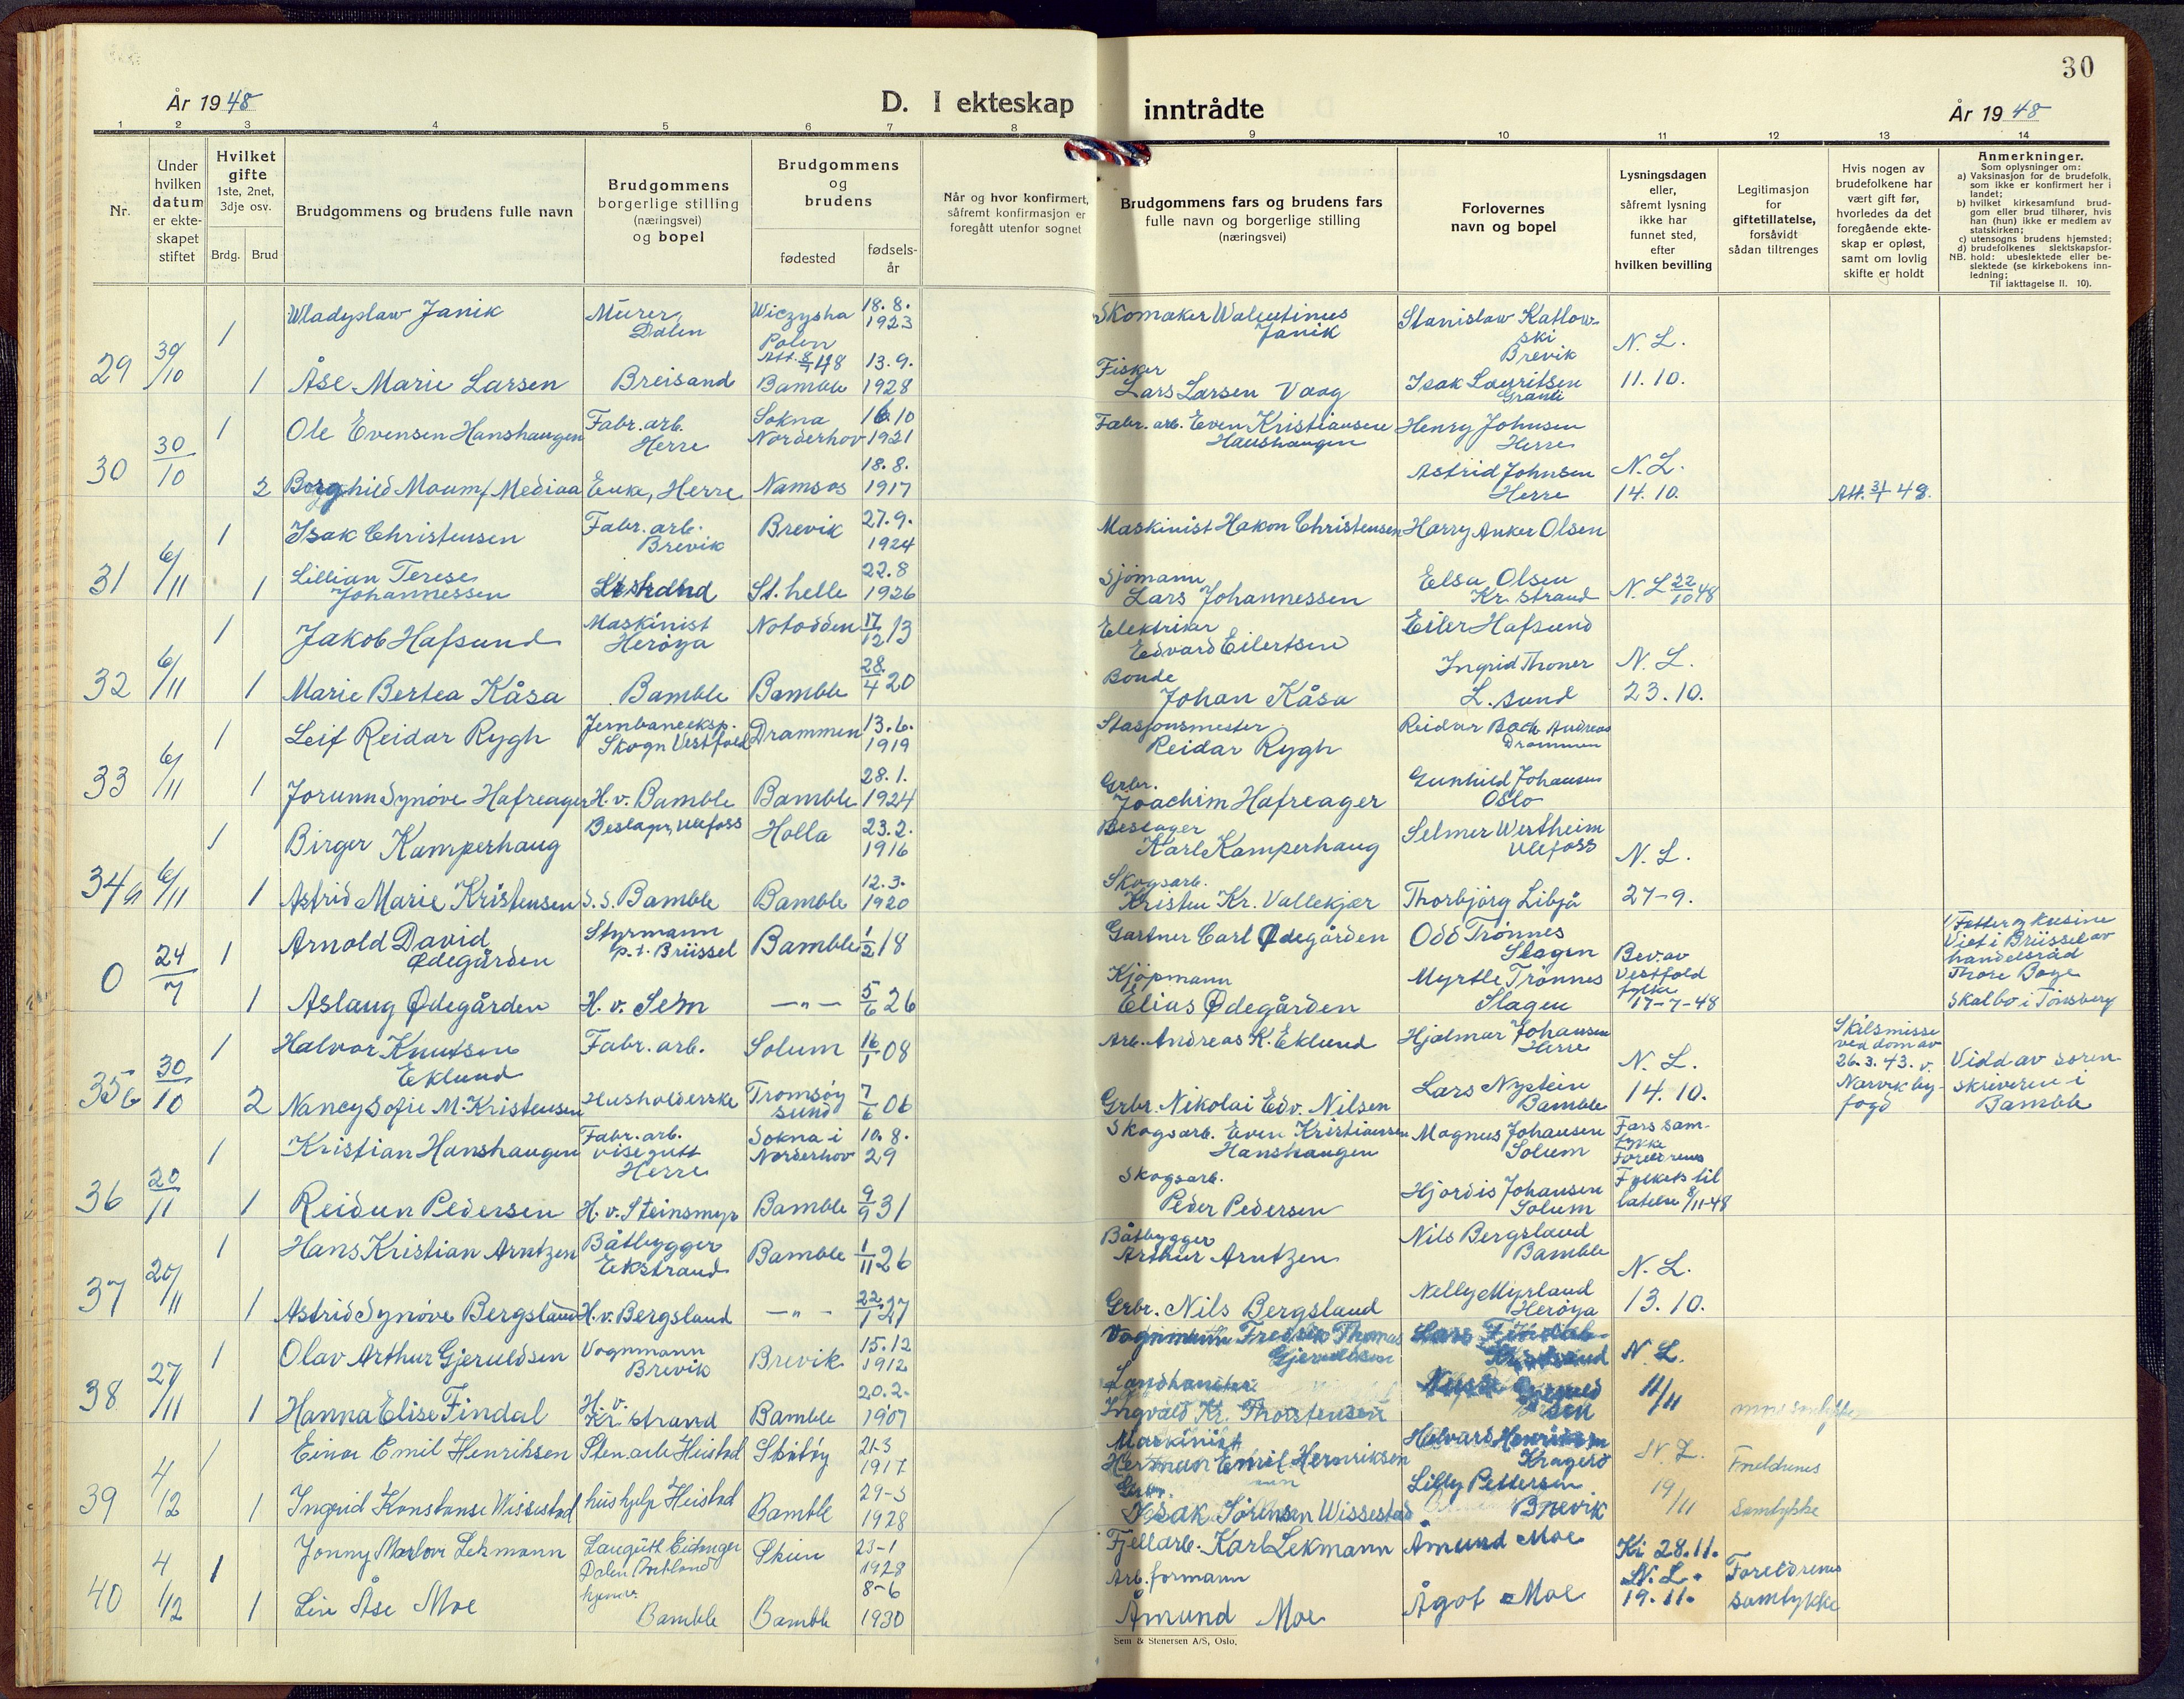 30
År 1948
D. I ekteskap inntrådte
År 1948
1 2 3 4 5 6 7 8 9 10 11 12 13 14
Nr.
Under
hvilken
datum
er ekte-
skapet
stiftet
Hvilket
gifte
1ste, 2net,
3dje osv.
Brdg. Brud
Brudgommens og brudens fulle navn
Brudgommens
borgerlige stilling
(næringsvei)
og bopel
Brudgommens
og
brudens
fødested
fødsels-
år
Når og hvor konfirmert,
såfremt konfirmasjon er
foregått utenfor sognet
Brudgommens fars og brudens fars
fulle navn og borgerlige stilling
(næringsvei)
Forlovernes
navn og bopel
Lysningsdagen
eller,
såfremt lysning
ikke har
funnet sted,
efter
hvilken bevilling
Legitimasjon
for
giftetillatelse,
forsåvidt
sådan tiltrenges
Hvis nogen av
brudefolkene har
vært gift før,
hvorledes da det
foregående ekte-
skap er opløst,
samt om lovlig
skifte er holdt
Anmerkninger.
Som oplysninger om:
a) Vaksinasjon for de brudefolk,
som ikke er konfirmert her i
landet;
b) hvilket kirkesamfund brud-
gom eller brud tilhører, hvis
han (hun) ikke er medlem av
statskirken;
c) utensogns brudens hjemsted;
d) brudefolkenes slektskapsfor-
NB. hold: ubeslektede eller be-
slektede (se kirkebokens inn-
ledning;
Til iakttagelse II. 10).
29 30/10 1 Wladyslaw Janik Murer, Dalen Wiczysha Polen 18.8. 1923 Skomaker Walentinus Janik Stanislaw Katlowski Brevik N. L.
1 Åse Marie Larsen Breisand Att. 8/4 48 Bamble 13.9. 1928 Fisker Lars Larsen Vaag Isak Lauritsen 11.10.
30 30/10 1 Ole Evensen Hanshaugen Fabr. arb. Herre Sokna Norderhov 16.10 1921 Fabr. arb. Even Kristiansen Hanshaugen Henry Johnsen Herre
2 Borghild Moum f. Mediaa Enke, Herre Namsos 18.8. 1917 Astrid Johnsen Herre N. L. 14.10. Att. 31/1 48.
31 6/11 1 Isak Christensen Fabr. arb. Brevik Brevik 27.9. 1924 Maskinist Hakon Christensen Harry Anker Olsen
1 Lillian Terese Johannessen St. helle 22.8 1926 Sjømann Lars Johannessen Elsa Olsen Kr. Strand N. L 22/10 48
32 6/11 1 Jakob Hafsund Maskinist Herøya Notodden 17/12 13 Elektriker Edvard Eilertsen Eiler Hafsund
1 Marie Bertea Kåsa Bamble Bamble 28/4 20 Bonde Johan Kåsa Ingrid Throner L. sund N. L. 23.10.
33 6/11 1 Leif Reidar Rygh Jernbaneeksp. Skogn Vestfold Drammen 13.6. 1919 Stasjonsmester Reidar Rygh Reidar Bach Andreas Drammen
1 Jorunn Synøve Hafreager H. v. Bamble Bamble 28.1. 1924 Grbr. Joachim Hafreager Gunhild Johansen Oslo
34 a 6/11 1 Birger Kamperhaug Beslagr, Ulefoss Holla 23.2. 1916 Beslager Karl Kamperhaug Selmer Wertheim Ulefoss N. L.
1 Astrid Marie Kristensen S. S. Bamble Bamble 12.3. 1920 Skogsarb. Kristen Kr. Vallekjær Thorbjørg Libjå 27-9.
0 24/7 1 Arnold David Ødegården Styrmann p. t. Brüssel Bamble 1/2 18 Gartner Carl Ødegården Odd Trønnes Slagen Bev. av Vestfold fylke 17-7-48 Fetter og kusine Viet i Brüssel av handelsråd Thore Boye
1 Aslaug Ødegården H. v. Sem —"— 5/6 26 Kjøpmann Elias Ødegården Myrtle Trønnes Slagen Skal bo i Tønsberg
35 b 30/10 1 Halvor Knutsen Eklund Fabr. arb. Solum 16/1 08 Arb. Andreas K. Eklund Hjalmar Johansen Herre N. L. 14.10. Skilsmisse ved dom av 26.3.43. v. Narvik by-fogd Vidd av soren-skriveren i Bamble
2 Nancy Sofie M. Kristensen Husholderske Tromsøysund 7/6 06 Grbr. Nikolai Edv. Nilsen Lars Nystein Bamble
36 20/11 1 Kristian Hanshaugen Fabr. arb. visegutt Herre Sokna i Norderhov 10.8. 29 Skogsarb. Even Kristiansen Hanshaugen Magnus Johansen Solum Fars samtykke Foreldrenes
1 Reidun Pedersen H. v. Steinsmyr Bamble 9/9 31 Skogsarb. Peder Pedersen Hjørdis Johansen Solum Fylkets tillatelse 8/11-48
37 20/11 1 Hans Kristian Arntzen Båtbygger Ekstrand Bamble 1/11 26 Båtbygger Arthur Arntzen Nils Bergsland Bamble N. L.
1 Astrid Synøve Bergsland H. v. Bergsland —"— 22/1 27 Grbr. Nils Bergsland Nelly Myrland Herøya 13.10.
38 27/11 1 Olav Arthur Gjeruldsen Vognmann Brevik Brevik 15.12 1912 Vognmann Fredrik Thomas Gjeruldsen Lars Findal Kr. strand N. L.
1 Hanna Elise Findal H. v. Kr. strand Bamble 20.2. 1907 Landhandler Ingvald Kr. Thorstensen 11/11
39 4/12 1 Einar Emil Henriksen Sten arb. Heistad Skåtøy 21-3 1917 Maskinist Herman Emil Henriksen Halvard Henriksen Kragerø N. L. Foreldrenes
1 Ingrid Konstanse Wissestad hushjelp Heistad Bamble 29-3 1928 Grbr. Isak Sørensen Wissestad Lilly Pettersen Brevik 19/11 Samtykke
40 4/12 1 Jonny Marlow Lekmann Laugutt Eidanger Dalen Portland Skien 23-1 1928 Fjellarb. Karl Lekmann Åmund Moe Ki 28.11. N. L. Foreldrenes
1 Liv Åse Moe hjemv. Bamble Bamble 8-6 1930 Arb. formann Åmund Moe Ågot Moe 19.11. samtykke
Sem & Stenersen A/S, Oslo.